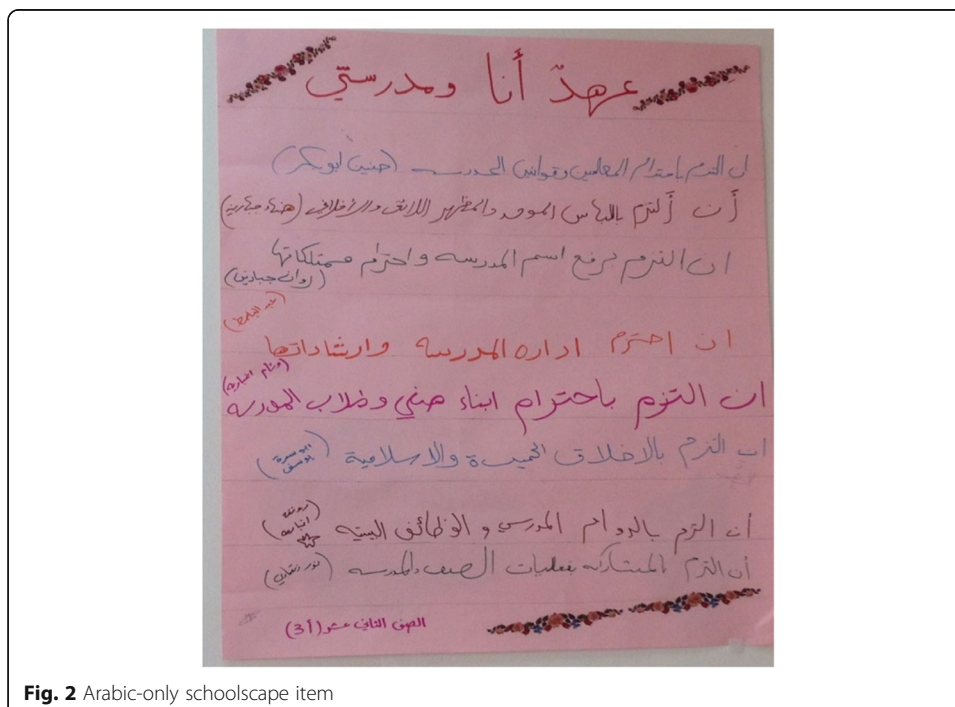 عهد أنا ومدرستي
ان التزم باحترام المعلمين وقوانين المدرسه (حنين ابو بكر)
أن ألتزم باللباس الموحد والمظهر اللائق والأخلاقي
ان التزم برفع اسم المدرسه و احترام ممتلكاتها
(روان جبارين)
ان احترم اداره المدرسه وارشاداتها
ان التزم باحترام ابناء صفي وطلاب المدرسه
ان التزم بالاخلاق الحميدة والاسلامية
أن التزم بالدوام المدرسي و الوظائف البيتيه
أن التزم المشاركه بفعاليات الصف والمدرسه
الصف الثاني عشر (أ3)
Fig. 2 Arabic-only schoolscape item